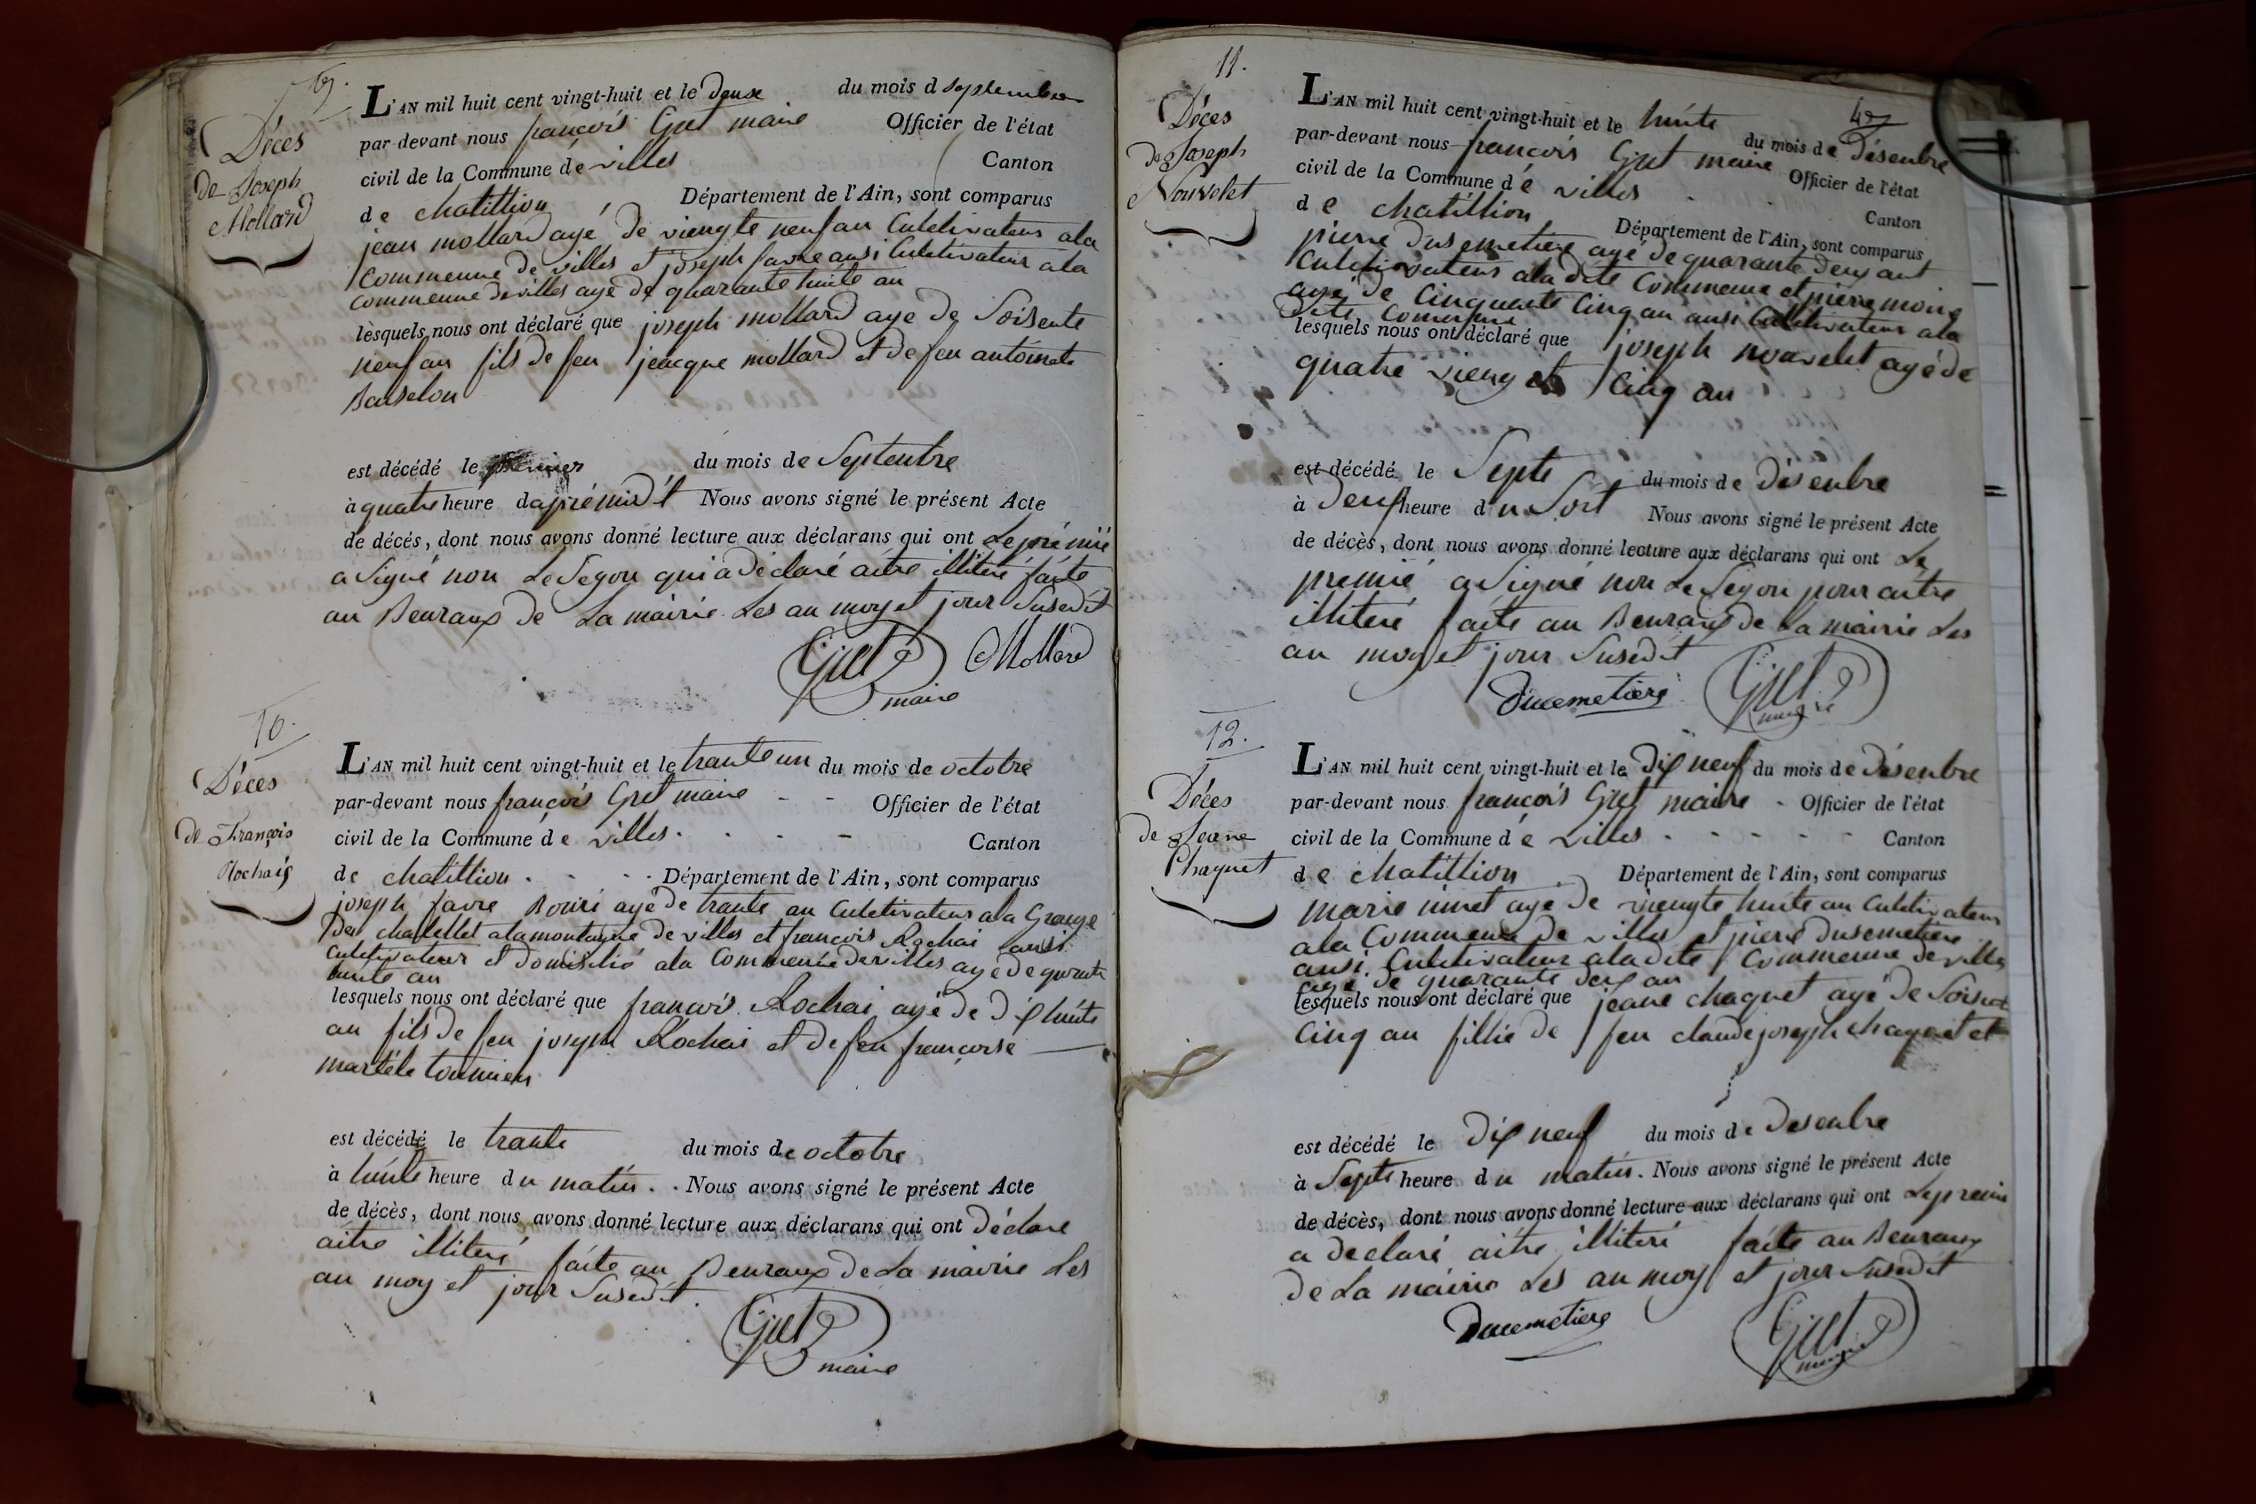 9.
Déces
de Joseph
Mollard
L'AN mil huit cent vingt-huit et le deux du mois d septembre
par-devant nous françois Gret maire Officier de l'état
civil de la Commune dé villes Canton
de chatillion Département de l'Ain, sont comparus
jean mollard agé de viengte neuf an Culetivateur ala
Commeune de villes et joseph favre ausi Culetivateur ala
commeune de villes agé de quarante huite an
lèsquels nous ont déclaré que joseph mollard age de Soisente
neuf an fils de feu jeacque mollard et de feu antoinete
Bauselon
est décédé le premier du mois de Septenbre
à quatre heure daprémidit Nous avons signé le présent Acte
de décés, dont nous avons donné lecture aux déclarans qui ont Le prémié
a Signé non Le Segon qui a déclaré aitre illiteré faite
au Beuraux de La mairie Les an moy et jour Susedit
Gret maire Mollard
10.
Déces
de François
Rochaix
L'AN mil huit cent vingt-huit et le trante un du mois de octobre
par-devant nous françois Gret maire Officier de l'état
civil de la Commune dé villes Canton
de chatillion Département de l'Ain, sont comparus
joseph favre Bouri agé de trante an Culetivateur ala Grange
du chatellet alamontagne de villes et françois Rochai ausi
culetivateur et domisilié ala Commeune de villes agé de quarante
huite an
lesquels nous ont déclaré que françois Rochai agé de dix huite
an fils de feu joseph Rochai et de feu françoise
martéle tournier
est décédé le trante du mois de octobre
à huite heure du matin. Nous avons signé le présent Acte
de décès, dont nous avons donné lecture aux déclarans qui ont déclaré
aitre illiteré faite au Beuraux de La mairie Les
an moy et jour Susedit.
Gret maire
11.
Déces
de Joseph
Nouvelet
L'AN mil huit cent vingt-huit et le huite du mois de désenbre
par-devant nous françois Gret maire Officier de l'état
civil de la Commune dé villes Canton
de chatillion Département de l'Ain, sont comparus
pierre dusemetiere agé de quarante deux ant
Culetivateur ala dite Commeune et pierre moine
agé de Cinquante Cinq an ausi Culetivateur ala
dite Commeune
lesquels nous ont déclaré que joseph nouvelet agé de
quatre vieng et Cinq an
est décédé le Septe du mois de désenbre
à deux heure du Soit Nous avons signé le présent Acte
de décès, dont nous avons donné lecture aux déclarans qui ont Le
premié a Signé non Le Segon pour aitre
illiteré faite au Beuraux de La mairie Les
an moy et jour Susedit
Ducemetiere Gret maire
12.
Déces
de Jeanne
Chaquet
L'AN mil huit cent vingt-huit et le dix neuf du mois de désenbre
par-devant nous françois Gret maire Officier de l'état
civil de la Commune dé villes Canton
de chatillion Département de l'Ain, sont comparus
marie ninet agé de viengte huite an Culetivateur
ala Commeune de villes et pierre dusemetiere
ausi Culetivateur ala dite Commeune de villes
agé de quarante deux an
lesquels nous ont déclaré que jeane chaquet agé de Soisente
Cinq an fillie de feu claude joseph chaquet et
est décédé le dix neuf du mois de desenbre
à Septe heure du matin. Nous avons signé le présent Acte
de décès, dont nous avons donné lecture aux déclarans qui ont Le premié
a declaré aitre illiteré faite au Beuraux
de La mairie Les an moy et jour Susedit
Ducemetiere Gret maire